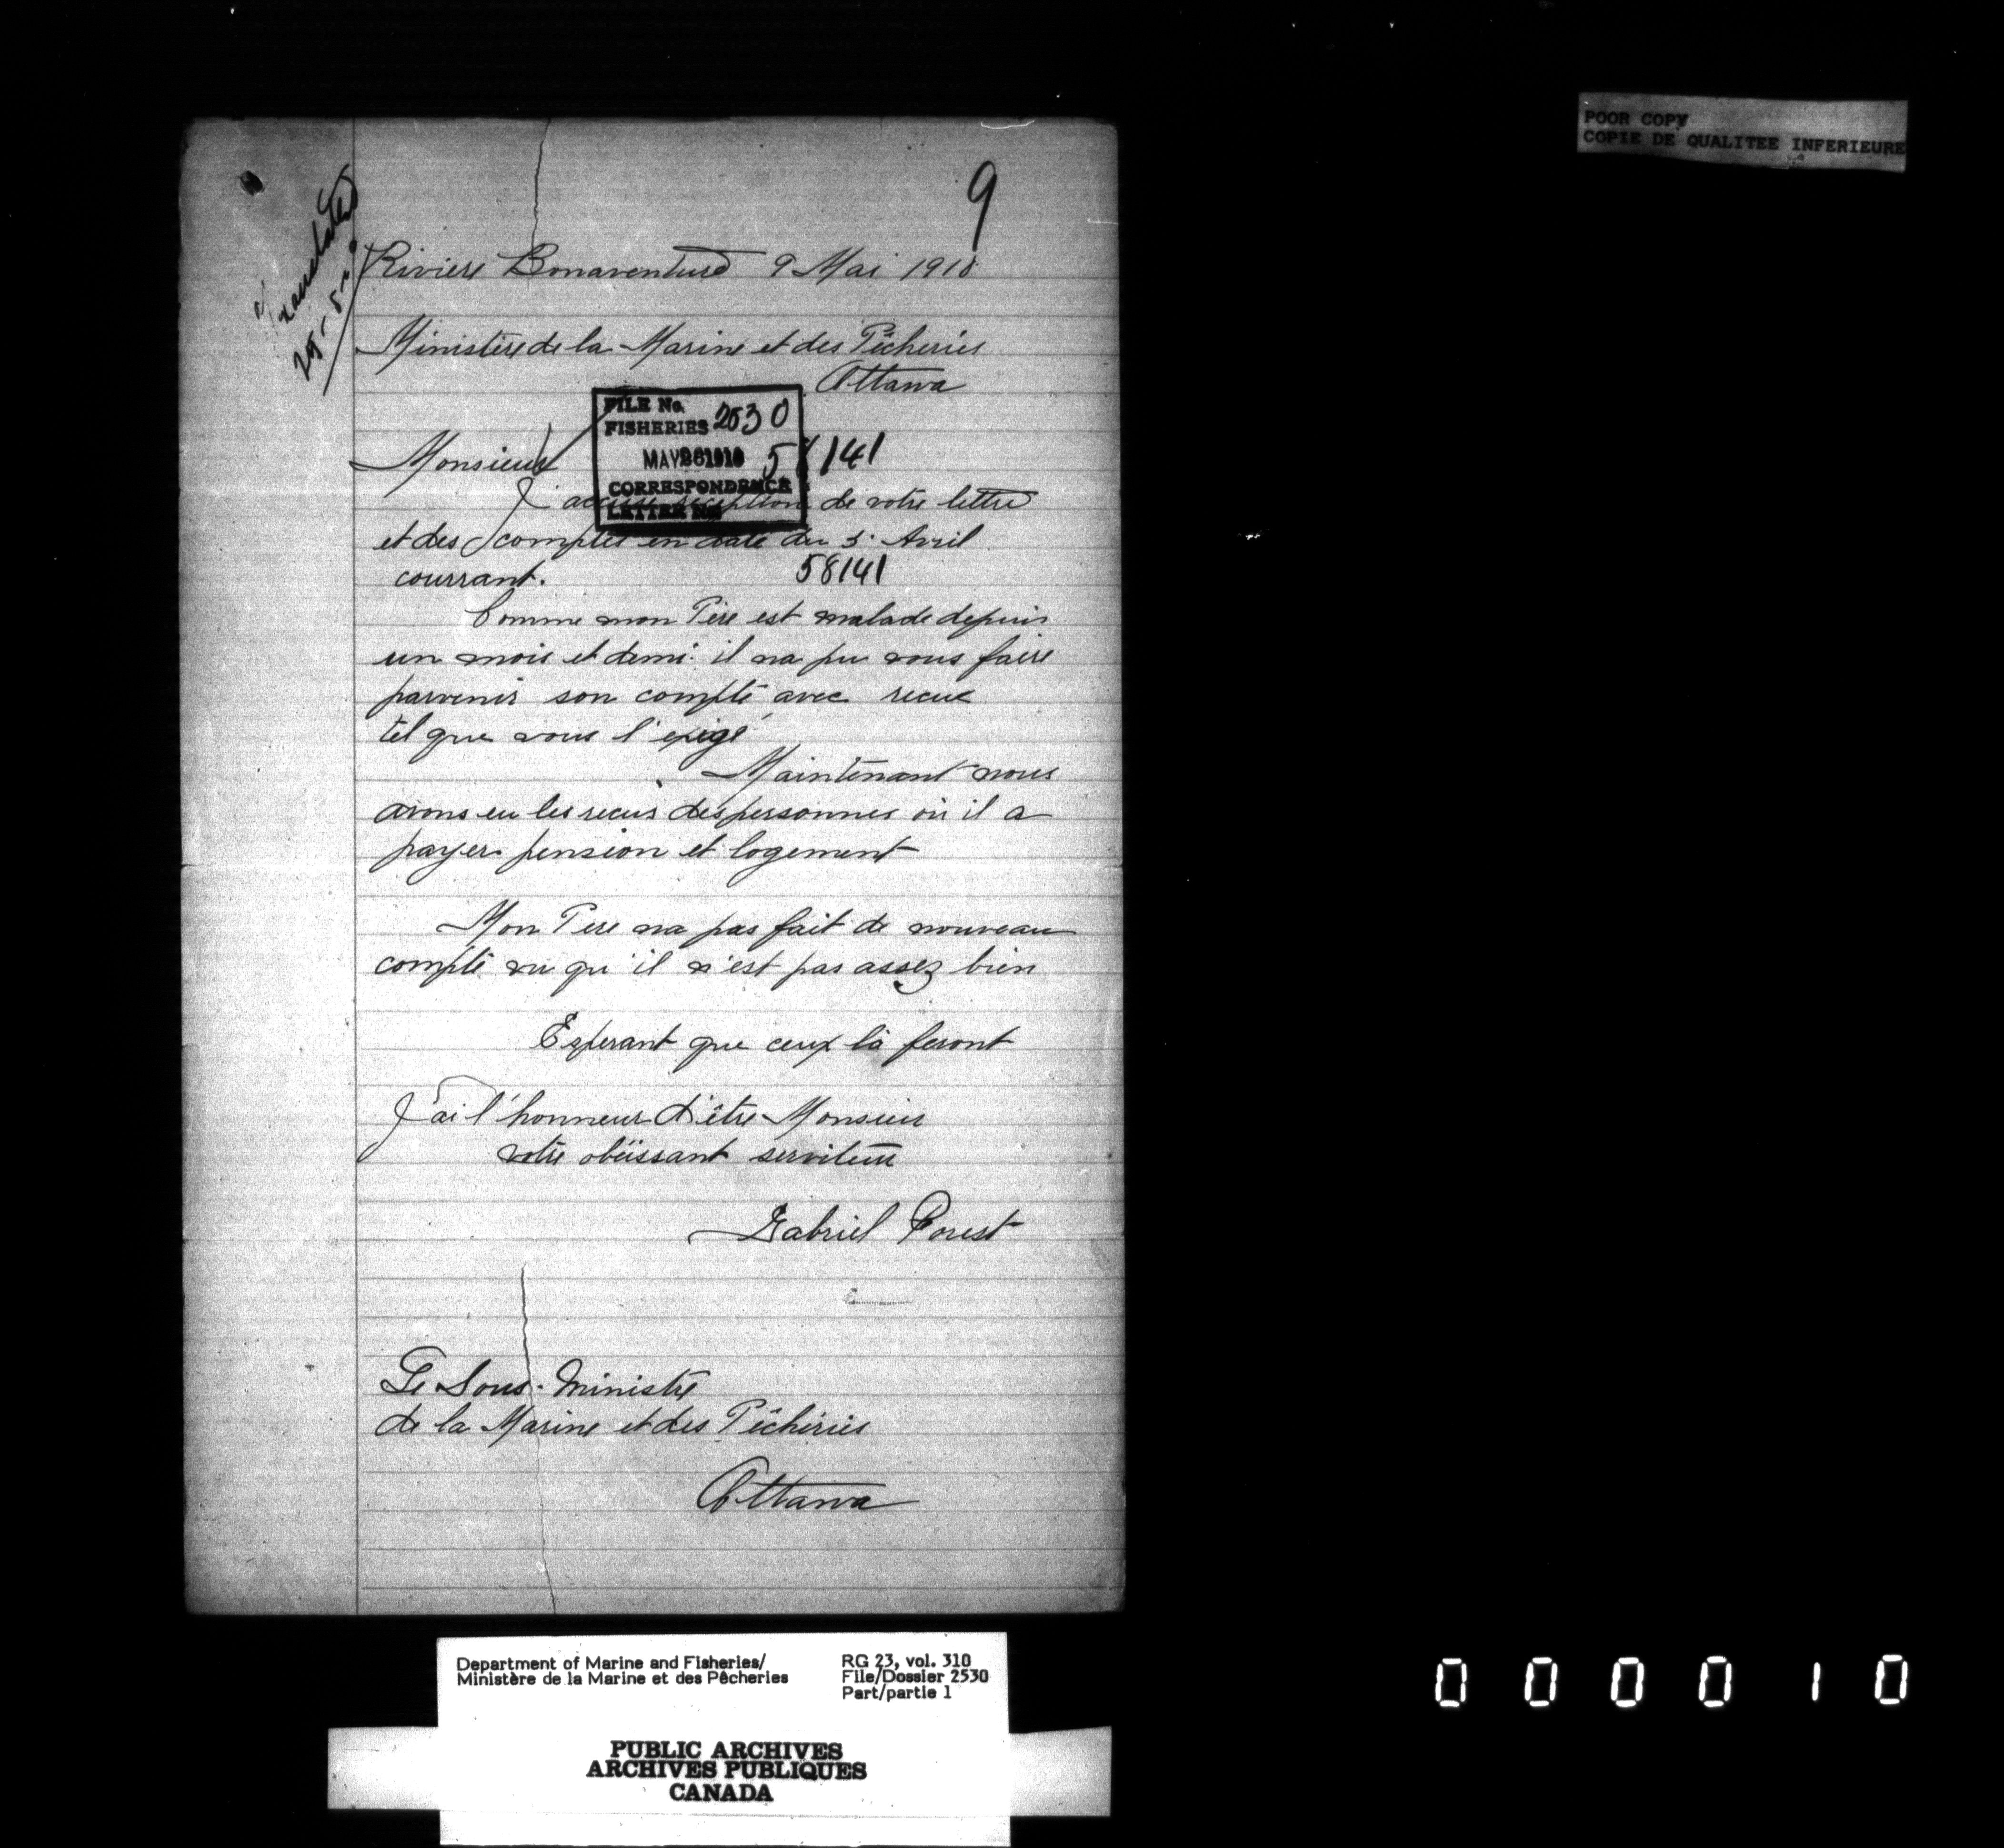 POOR COPY
COPIE DE QUALITEE INFERIEURE
9
Translated
Riviere Bonaventure 9 Mai 1910
Ministère de la Marine et des Pêcheries
Ottawa
FILE No.
FISHERIES 2530
MAY 26 1910 58141
CORRESPONDENCE
LETTER No
Monsieur
J'accuse reception de votre lettre
et des comptes en date du 5. Avril
courrant.
58141
Comme mon Père est malade depuis
un mois et demi il na pu vous faire
parvenir son compte avec recue
tel que vous l'exigé
Maintenant nous
avons eu les recus des personnes où il a
payer pension et logement
Mon Pere na pas fait de nouveau
compte vu qu'il n'est pas assez bien
Esperant que ceux là feront
J'ai l'honneur d'être Monsieur
votre obéissant serviteur
Gabriel Forest
Le Sous-Ministre
de la Marine et des Pêcheries
Ottawa
Department of Marine and Fisheries/
Ministère de la Marine et des Pêcheries
RG 23, vol. 310
File/Dossier 2530
Part/partie 1
PUBLIC ARCHIVES
ARCHIVES PUBLIQUES
CANADA
000010